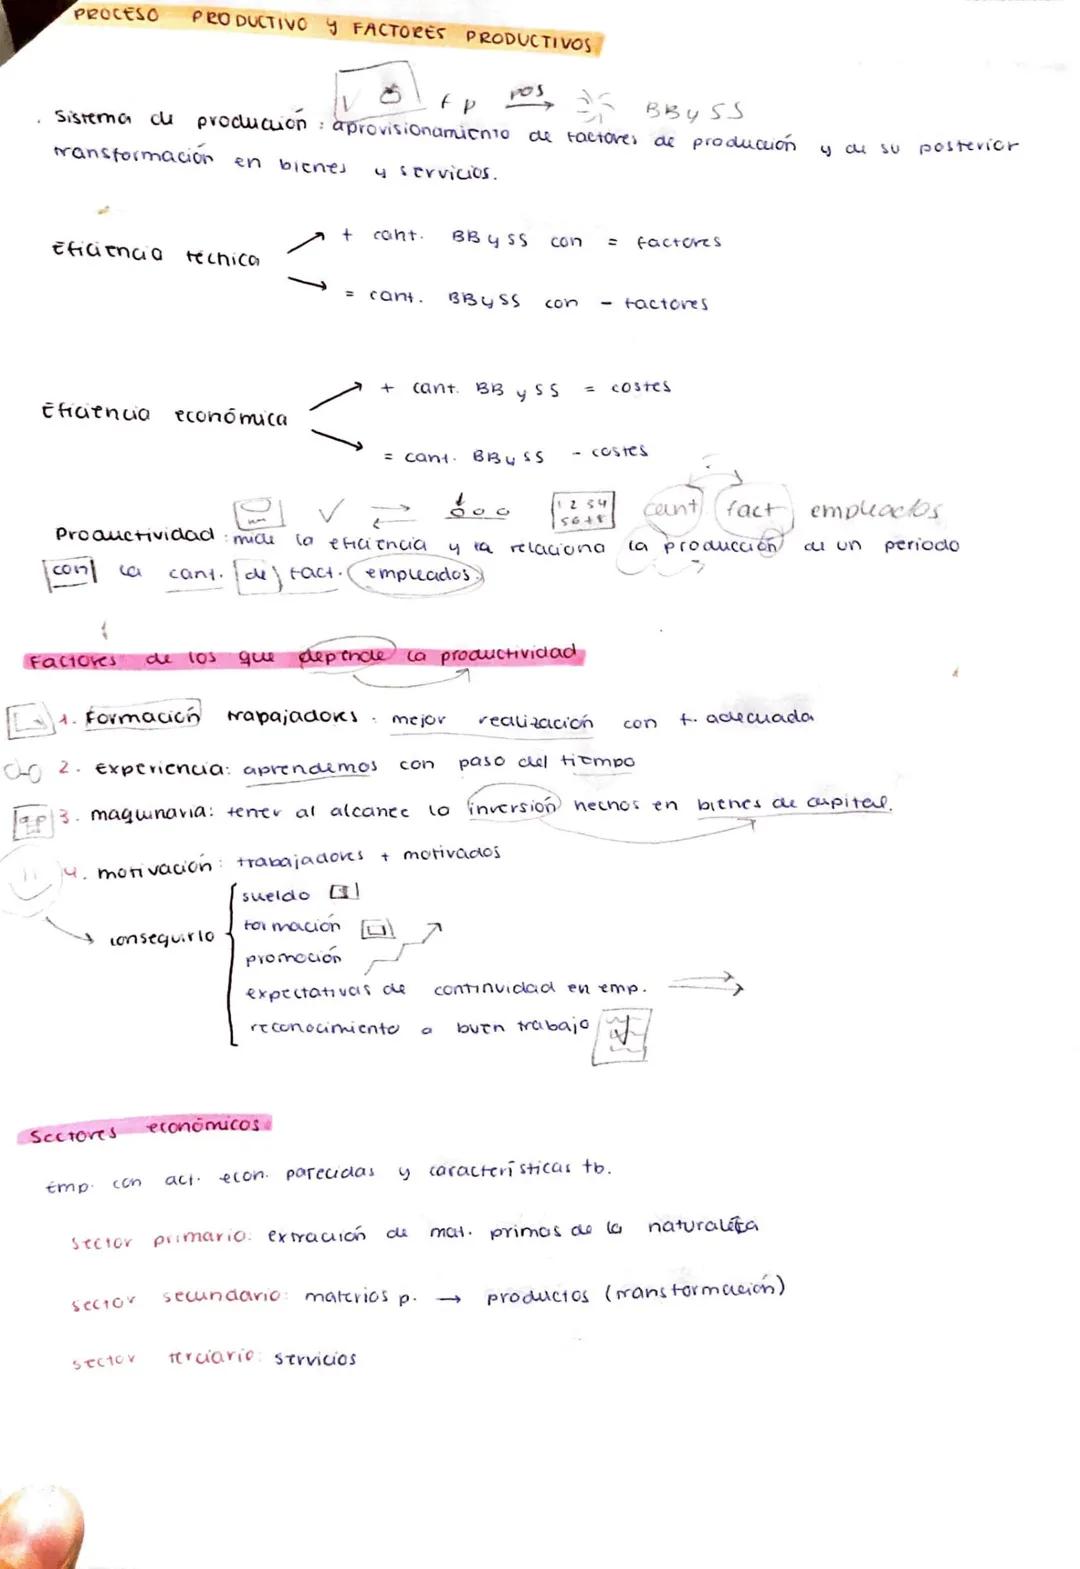 PROCESO PRODUCTIVO y FACTORES PRODUCTIVOS
fp pos BB y SS
. Sistema de producción : aprovisionamiento de factores de producción y de su posterior
transformación en bienes y servicios.
+ cant. BB y SS con = factores
Eficiencia técnica
= cant. BB y SS con - factores
+ cant. BB y SS = costes
Eficiencia económica
= cant. BB y SS - costes
1 2 3 4 cant fact empleados
5 6 7 8
Productividad : mide la eficiencia y la relaciona la producción de un periodo
con la cant. de fact. empleados.
Factores de los que depende la productividad
1. Formación trabajadores : mejor realización con f. adecuada
2. Experiencia: aprendemos con paso del tiempo
3. maquinaria: tener al alcance lo inversión hechos en bienes de capital.
4. motivación : trabajadores + motivados
sueldo
formación
conseguirlo
promoción
expectativas de continuidad en emp.
reconocimiento a buen trabajo
Sectores económicos
Emp. con act. econ. parecidas y características tb.
Sector primario: extracción de mat. primas de la naturaleza
sector secundario: materias p. → productos (transformación)
sector terciario: servicios